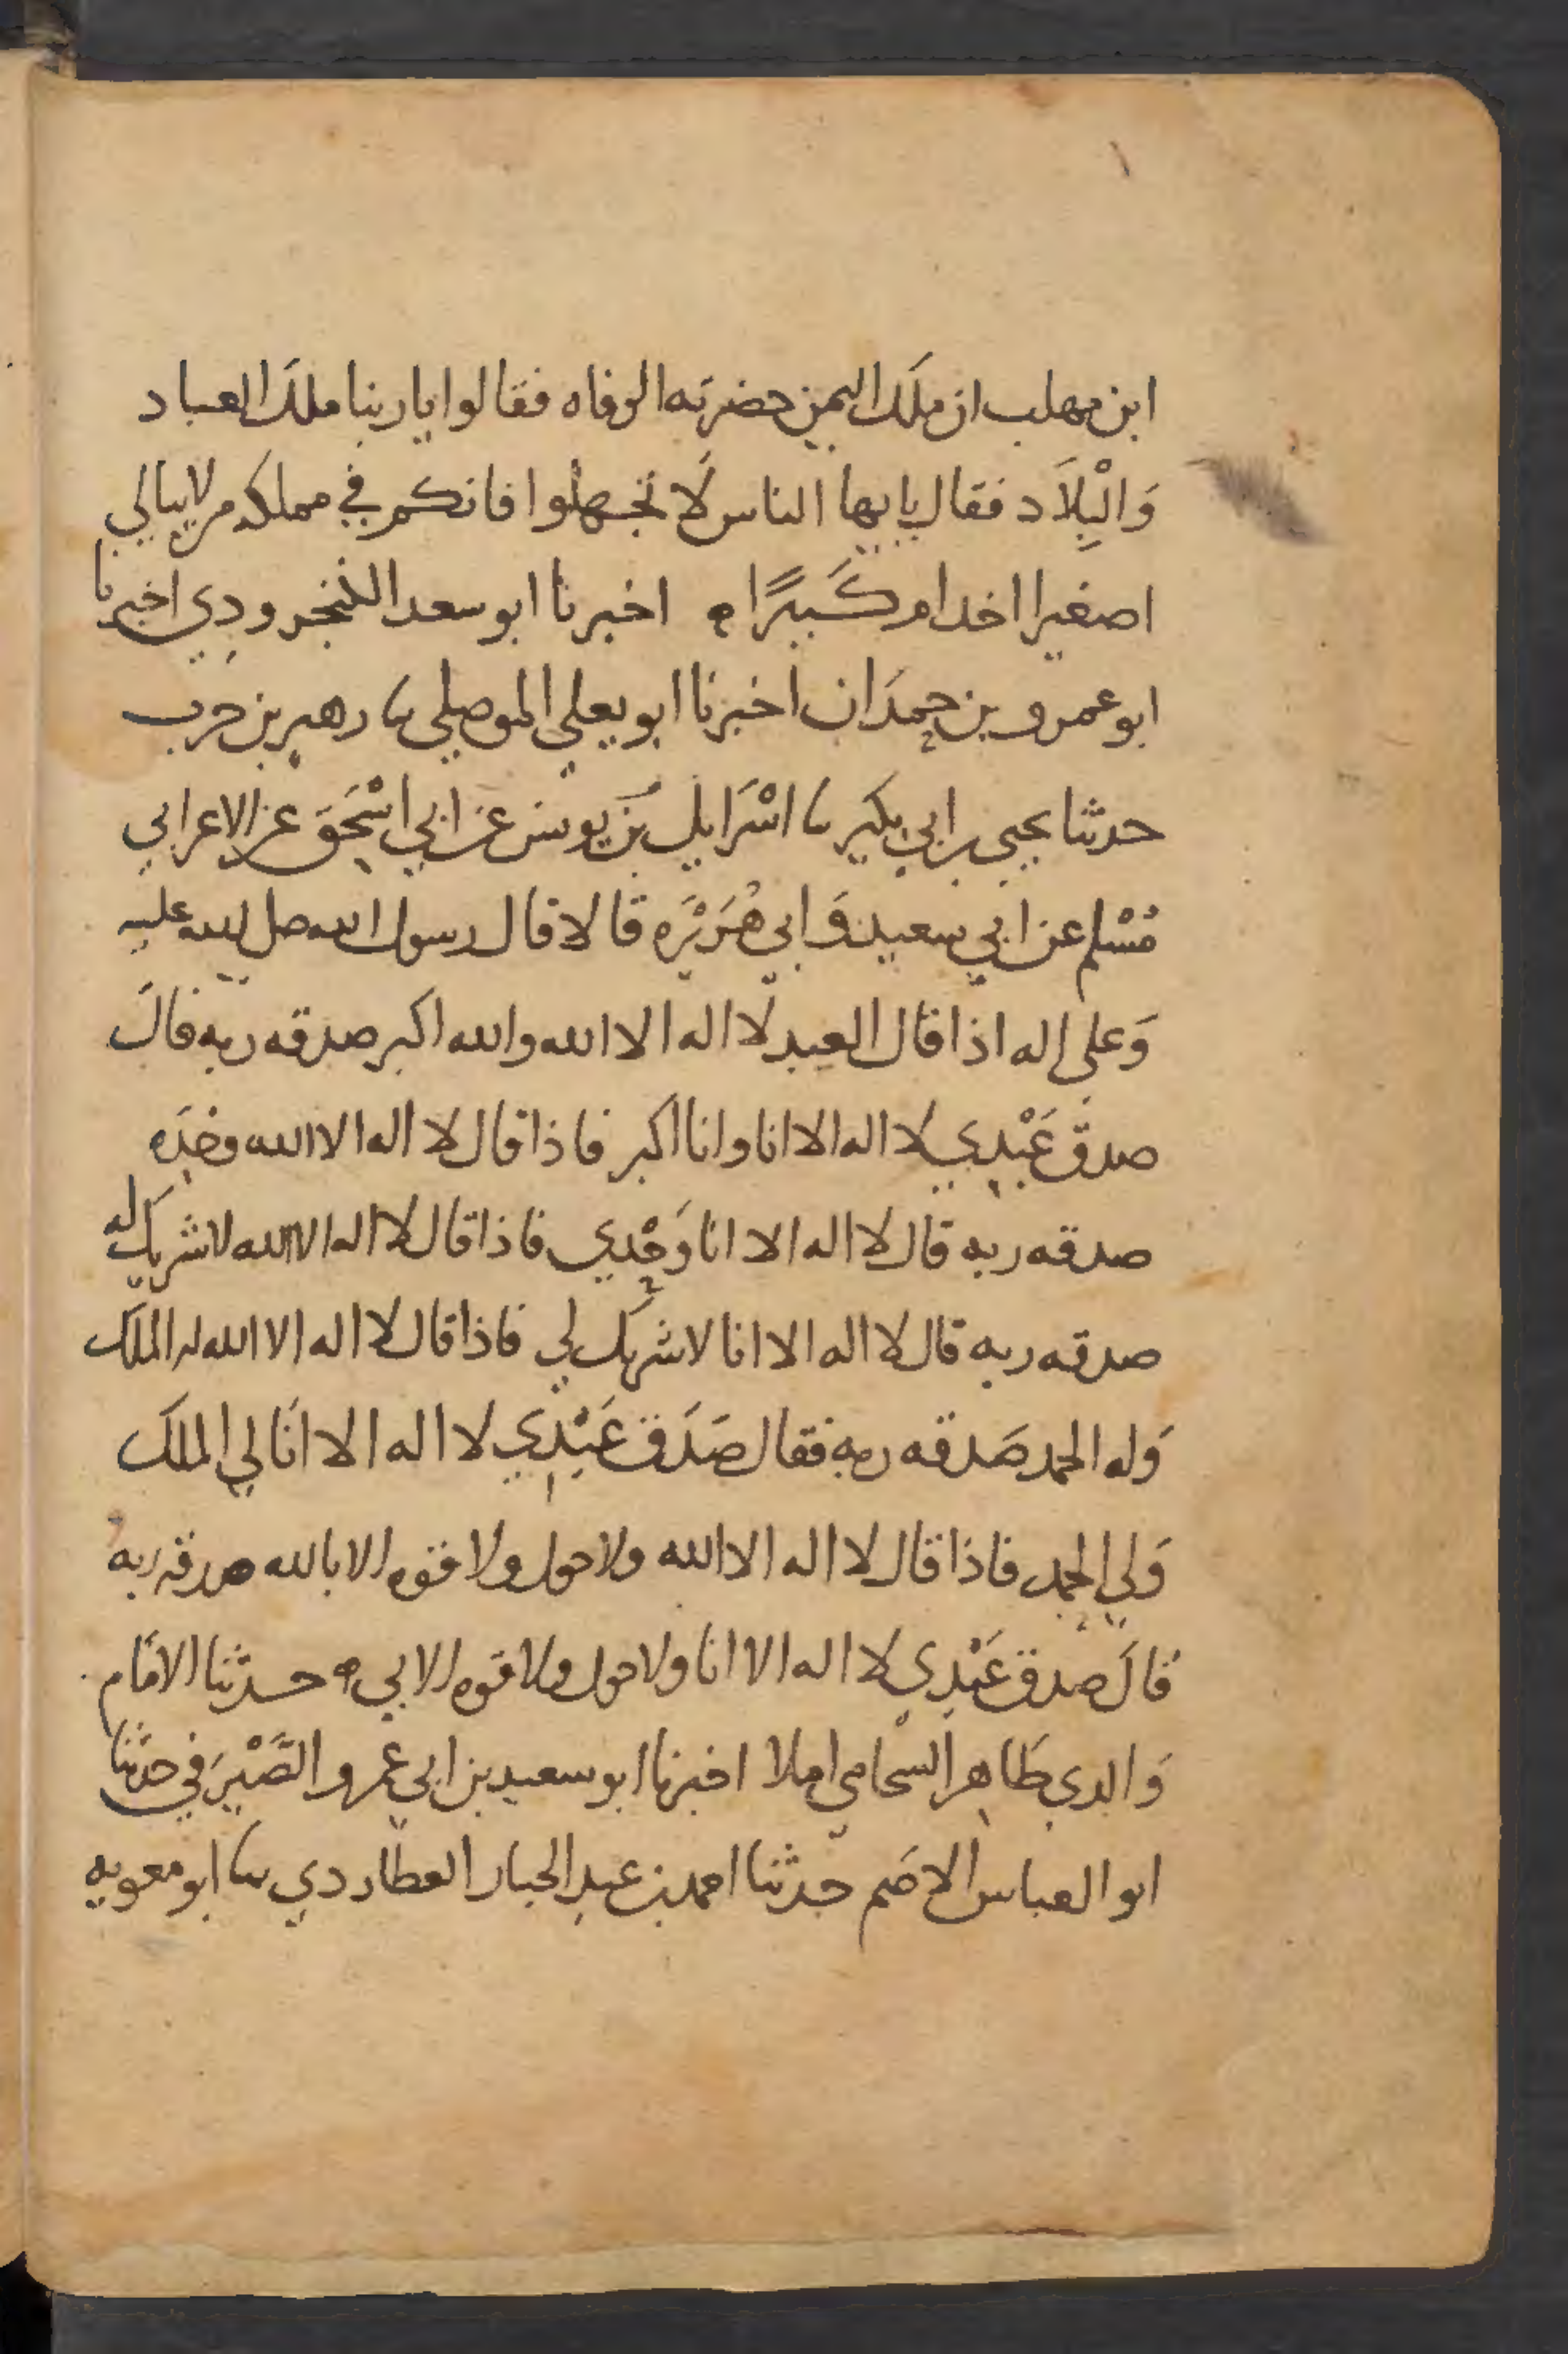 ابن مهلب ان ملك اليمن حضرته الوفاه فقالوا يا ربنا ملك العباد
وَالْبِلَاد فقال يايها الناس لَا تجهلوا فانكم في مملكه من لا يبالي
اصغيرا اخد ام كَبيرًا ه اخبرنا ابو سعد الكنجرودِي اخبرنا
ابو عمرو بن حمدَان اخبرنا ابو يعلي الموصلي ثنا زهير بن حرب
حدثنا يحيي بن ابي بكير ثنا اسْرَايل بن يونس عن ابي اسْحَق عن الاعرابي
مُسْلم عن ابي سعيد وَابي هُرَيْرَه قالا قال رسول الله صل الله عليه
وَعلي اله اذا قال العبد لا اله الا الله والله اكبر صدقه ربه قالَ
صدق عَبْدِي لا اله الا انا وانا اكبر فاذا قال لا اله الا الله وحْدَه
صدقه ربه قال لا اله الا انا وَحْدي فاذا قال لا اله الا الله لا شريك له
صدقه ربه قال لا اله الا انا لا شريك لي فاذا قال لا اله الا الله له الملك
وَله الحمد صَدقه ربه فقال صَدَق عَبْدِي لا اله الا اَنا لي الملك
وَلي الحمد فاذا قال لا اله الا الله ولا حول ولا قوه الا بالله صدقه ربه
قالَ صدق عَبْدِي لا اله الا انا ولا حول ولا قوه الا بي ه حدثنا الامَام
وَالدي طَاهر الشحامي املا اخبرنا ابو سعيد بن ابي عمرو الصَّيْرَفي حدثنا
ابو العباس الاصَم حدثنا احمد بن عبد الجبار العطاردي ثنا ابو معويه